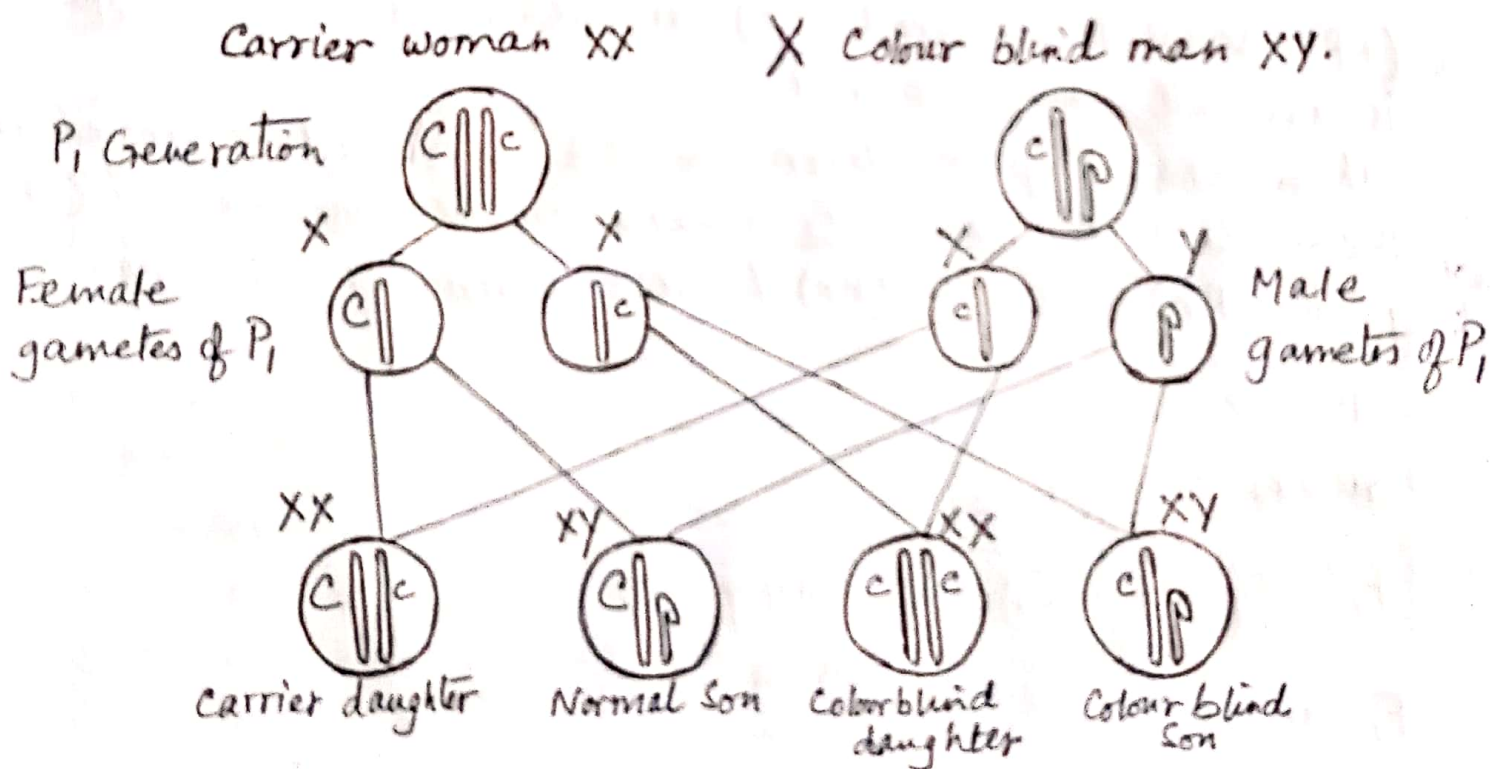 Carrier woman XX X Colour blind man XY.
P₁ Generation
C c
c
X X
X Y
Female
gametes of P₁
C
c
c
Male
gametes of P₁
XX
XY
XX
XY
C c
C
c c
c
Carrier daughter
Normal Son
Colourblind
daughter
Colour blind
Son